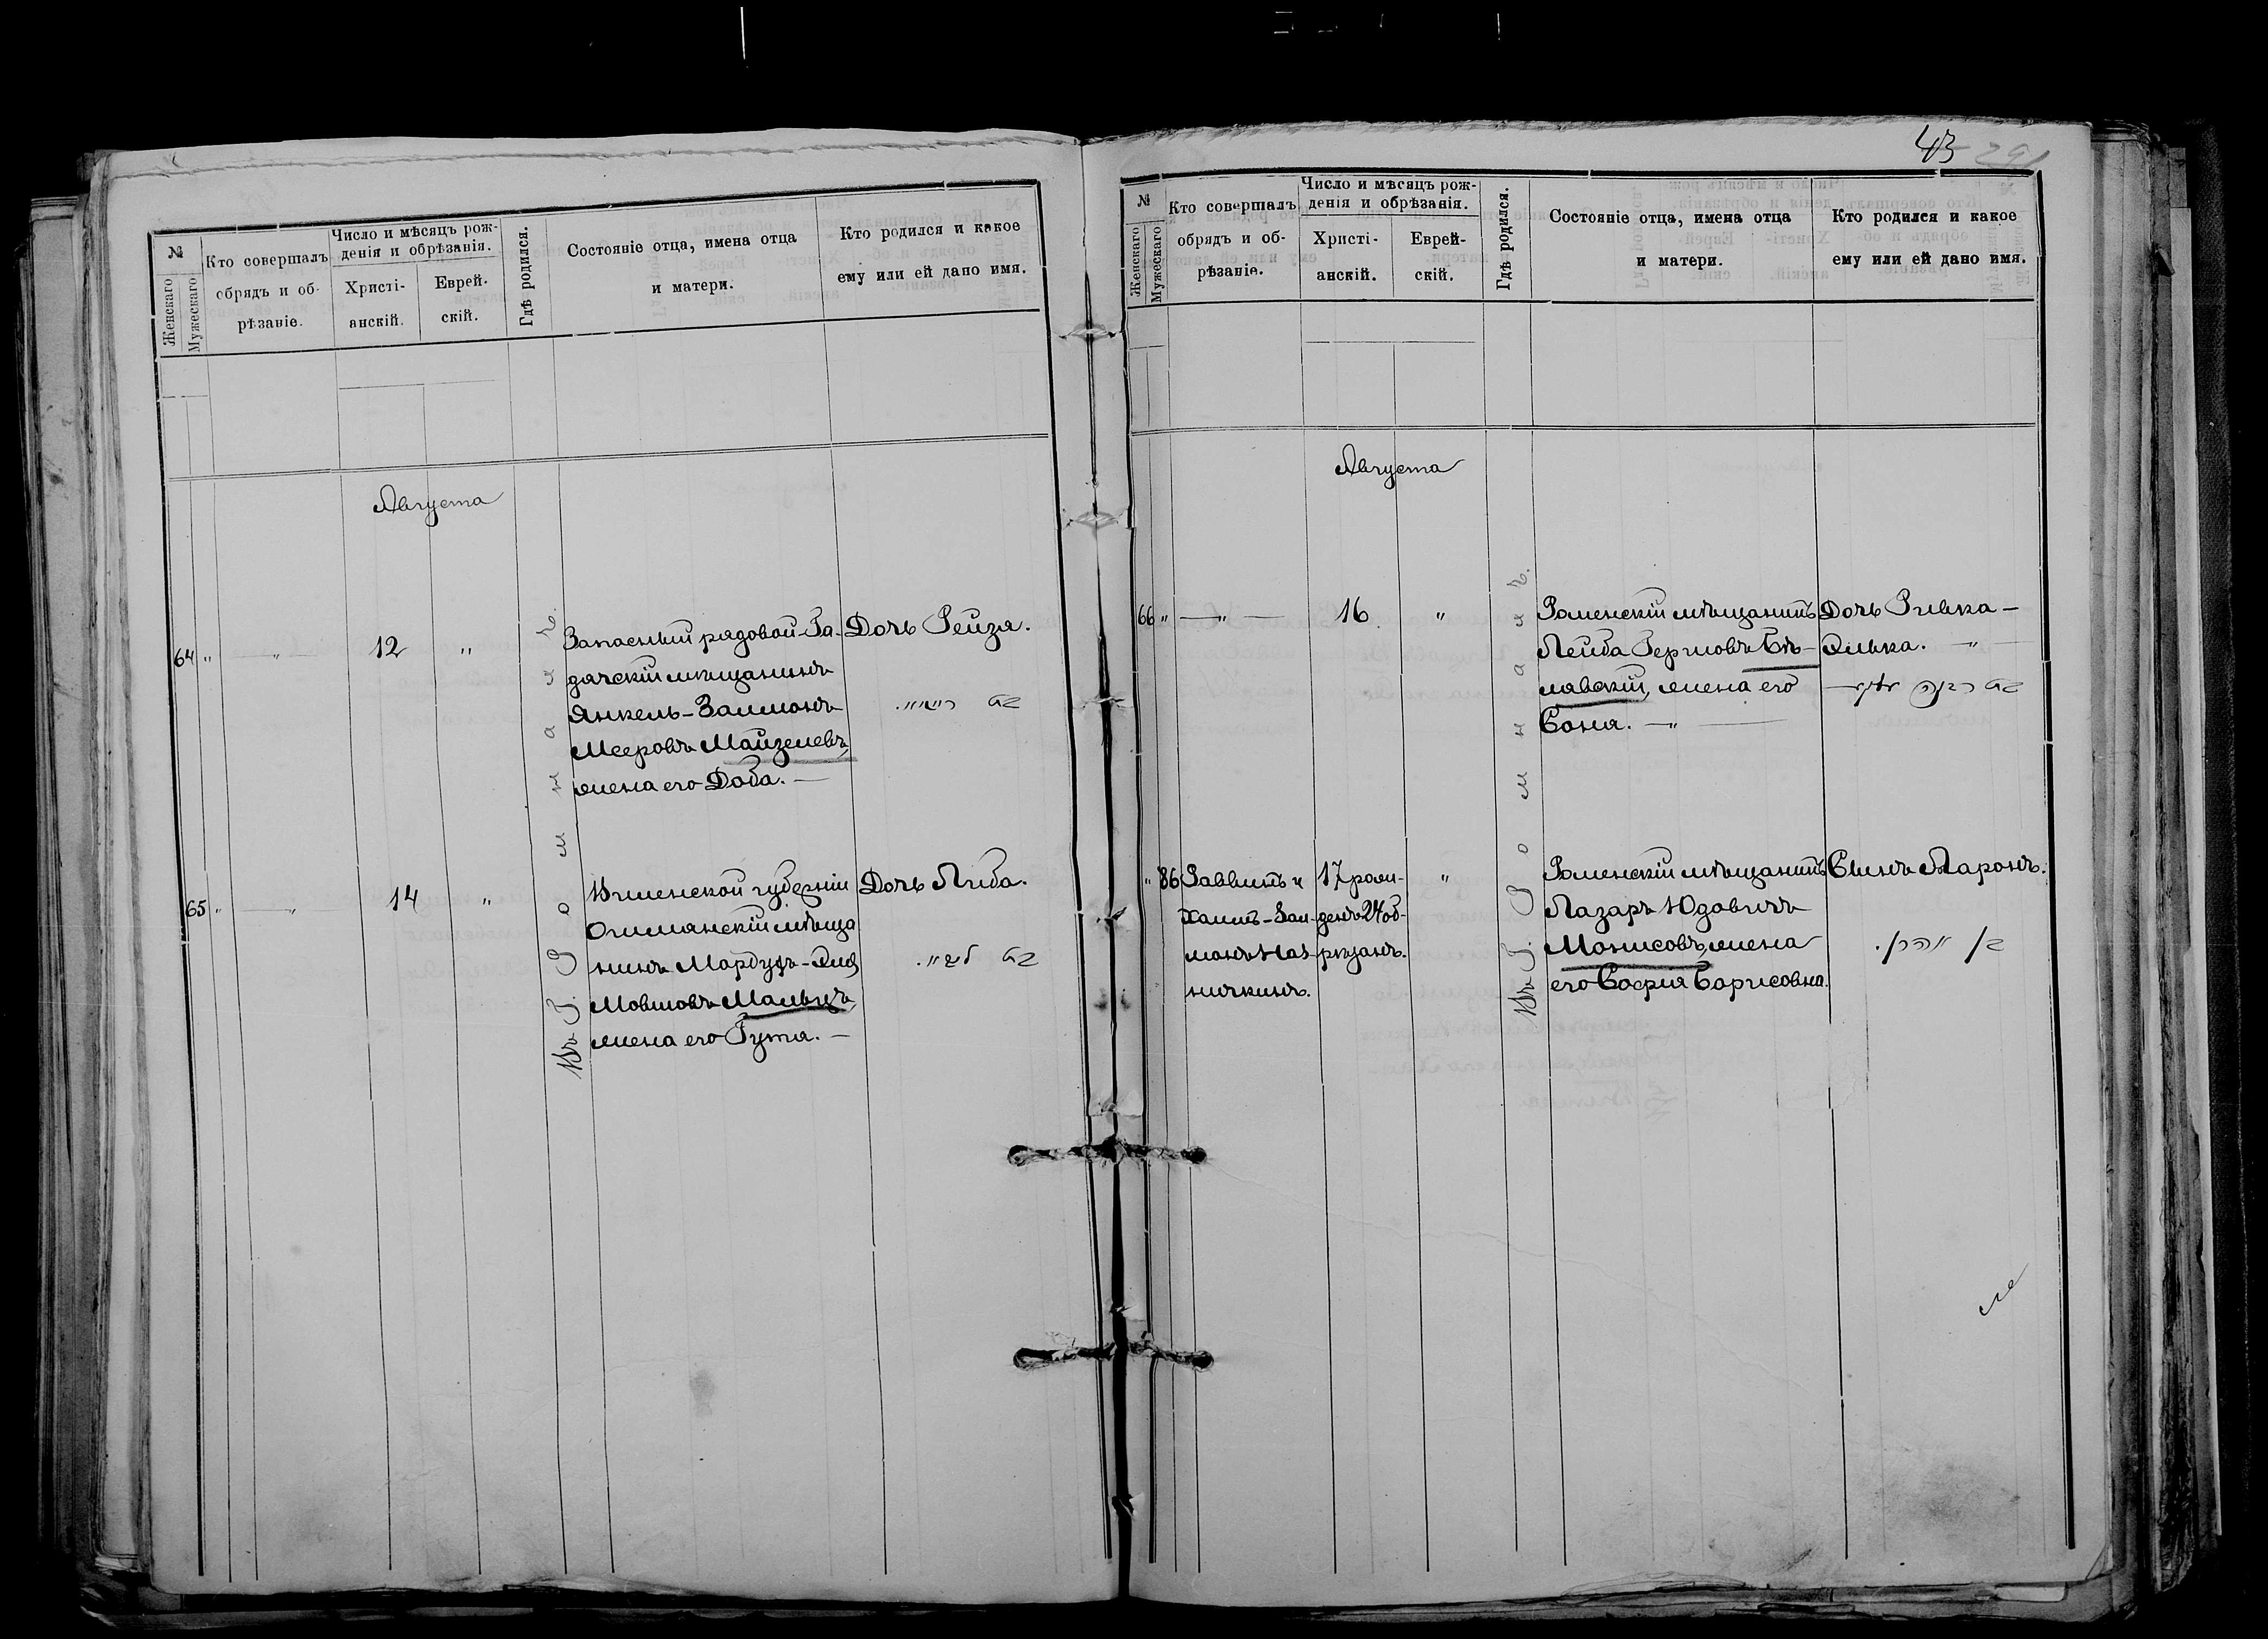 43
№
Женскаго
Мужескаго
Кто совершалъ
обрядъ и об-
рѣзаніе.
Число и мѣсяцъ рож-
денія и обрѣзанія.
Христі-
анскій.
Еврей-
скій.
Гдѣ родился.
Состояніе отца, имена отца
и матери.
Кто родился и какое
ему или ей дано имя.
Августа
64 " — " — 12 "
Въ г. Ромнахъ.
Запасный рядовой-Га-
дячскій мѣщанинъ
Янкель-Залманъ
Мееровъ Майзелевъ,
жена его Доба. —
Дочь Рейзя.
65 " — " 14 "
Виленской губерніи
Ошмянскій мѣща
нинъ Мордухъ-
Мовшовъ
жена его Гутя. —
Дочь Либа.
№
Женскаго
Мужескаго
Кто совершалъ
обрядъ и об-
рѣзаніе.
Число и мѣсяцъ рож-
денія и обрѣзанія.
Христі-
анскій.
Еврей-
скій.
Гдѣ родился.
Состояніе отца, имена отца
и матери.
Кто родился и какое
ему или ей дано имя.
Августа
66 " — " — 16 "
Въ г. Ромнахъ.
Роменскій мѣщанинъ
Лейба Гершовъ Бѣ-
лявскій, жена его
Соня. — " —
Дочь Ривка —
Элька. — " —
" 86
Раввинъ и
Хаимъ-Зал-
манъ
17 рож-
денъ 24 об-
рѣзанъ.
"
Роменскій мѣщанинъ
Лазарь Юдовичъ
Монисовъ, жена
его Софія Борисовна.
Сынъ Аронъ.
בן אהרן.